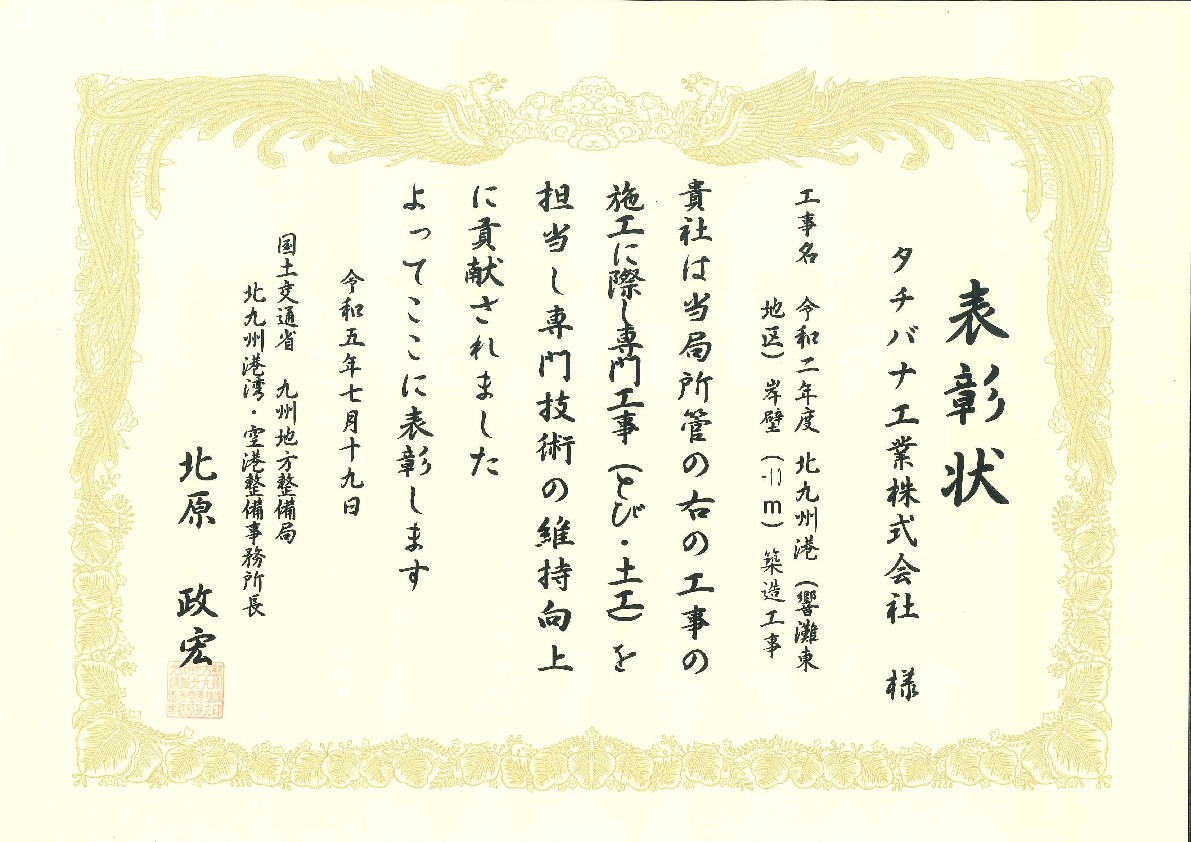 表彰状
タチバナ工業株式会社 様
工事名 令和二年度 北九州港(響灘東
地区)岸壁(-11m)築造工事
貴社は当局所管の右の工事の
施工に際し専門工事(とび・土工)を
担当し専門技術の維持向上
に貢献されました
よってここに表彰します
令和五年七月十九日
国土交通省 九州地方整備局
北九州港湾・空港整備事務所長
北原 政宏